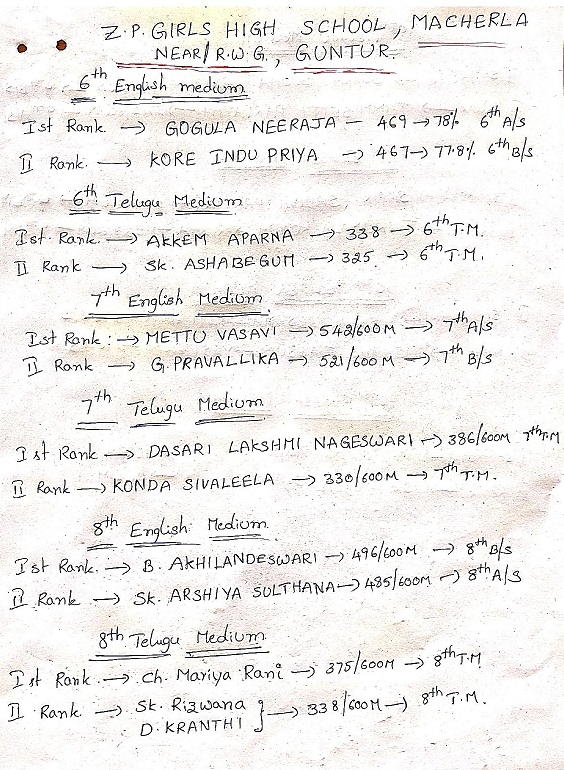 Z.P. GIRLS HIGH SCHOOL, MACHERLA
NEAR/R.W.G., GUNTUR.
6th English medium
Ist Rank → GOGULA NEERAJA – 469 → 78% 6th A/s
II Rank. → KORE INDU PRIYA → 467 → 77.8% 6th B/s
6th Telugu Medium
Ist. Rank. → AKKEM APARNA → 338 → 6th T.M.
II Rank → Sk. ASHABEGUM → 325 → 6th T.M.
7th English Medium
Ist Rank: → METTU VASAVI → 542/600M → 7th A/s
II Rank → G. PRAVALLIKA → 521/600M → 7th B/s
7th Telugu Medium
Ist Rank → DASARI LAKSHMI NAGESWARI → 386/600M 7th T.M
II Rank → KONDA SIVALEELA → 330/600M → 7th T.M.
8th English Medium
Ist Rank. → B. AKHILANDESWARI → 496/600M → 8th B/s
II Rank → Sk. ARSHIYA SULTHANA → 485/600M → 8th A/s
8th Telugu Medium
Ist Rank. → Ch. Mariya Rani → 375/600M → 8th T.M
II Rank → Sk. Rizwana
D. KRANTHI } → 338/600M → 8th T.M.